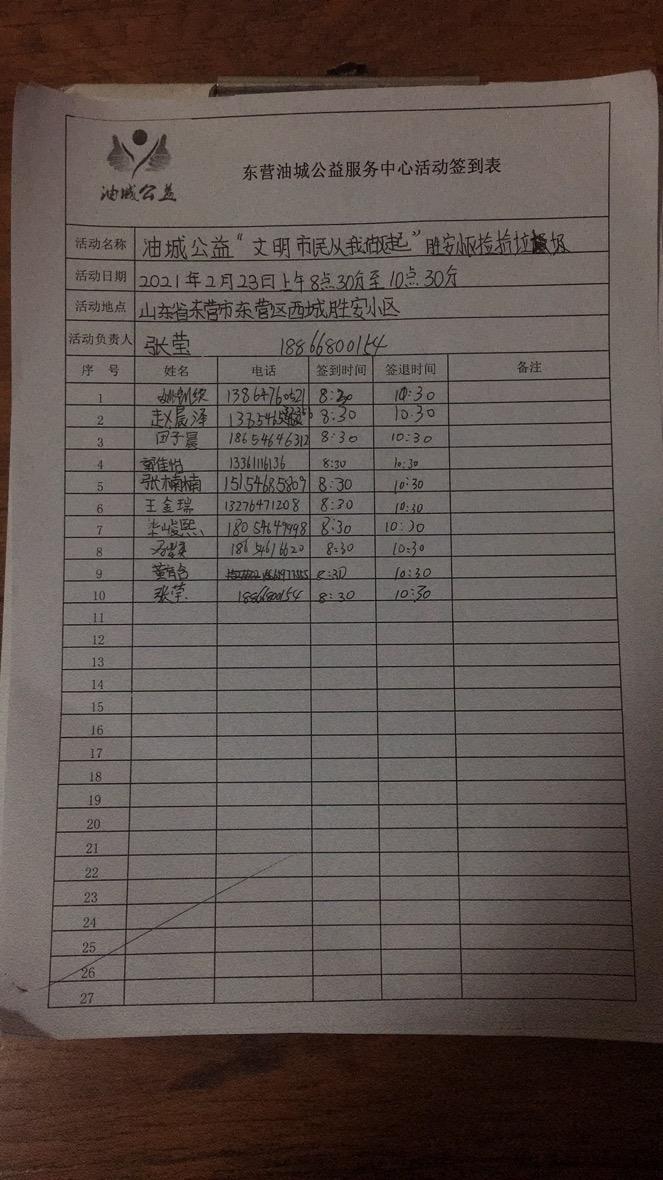 油城公益
东营油城公益服务中心活动签到表
活动名称 油城公益“文明市民从我做起”胜安小区捡拾垃圾
活动日期 2021年2月23日上午8点30分至10点30分
活动地点 山东省东营市东营区西城胜安小区
活动负责人 张莹 18866800154
序号 姓名 电话 签到时间 签退时间 备注
1 13864760521 8:30 10:30
2 赵晨泽 8:30 10:30
3 田子晨 18654646312 8:30 10:30
4 郭佳怡 13361116136 8:30 10:30
5 张楠楠 15154685809 8:30 10:30
6 王金瑞 13276471208 8:30 10:30
7 李峻熙 18054649998 8:30 10:30
8 18654616620 8:30 10:30
9 8:30 10:30
10 张莹 18866800154 8:30 10:30
11
12
13
14
15
16
17
18
19
20
21
22
23
24
25
26
27